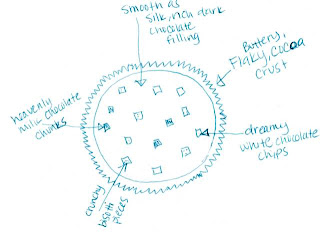 smooth as
silk, rich dark
chocolate
filling
Buttery,
Flaky, Cocoa
crust
heavenly
milk chocolate
chunks
dreamy
white chocolate
chips
crunchy
biscotti
pieces